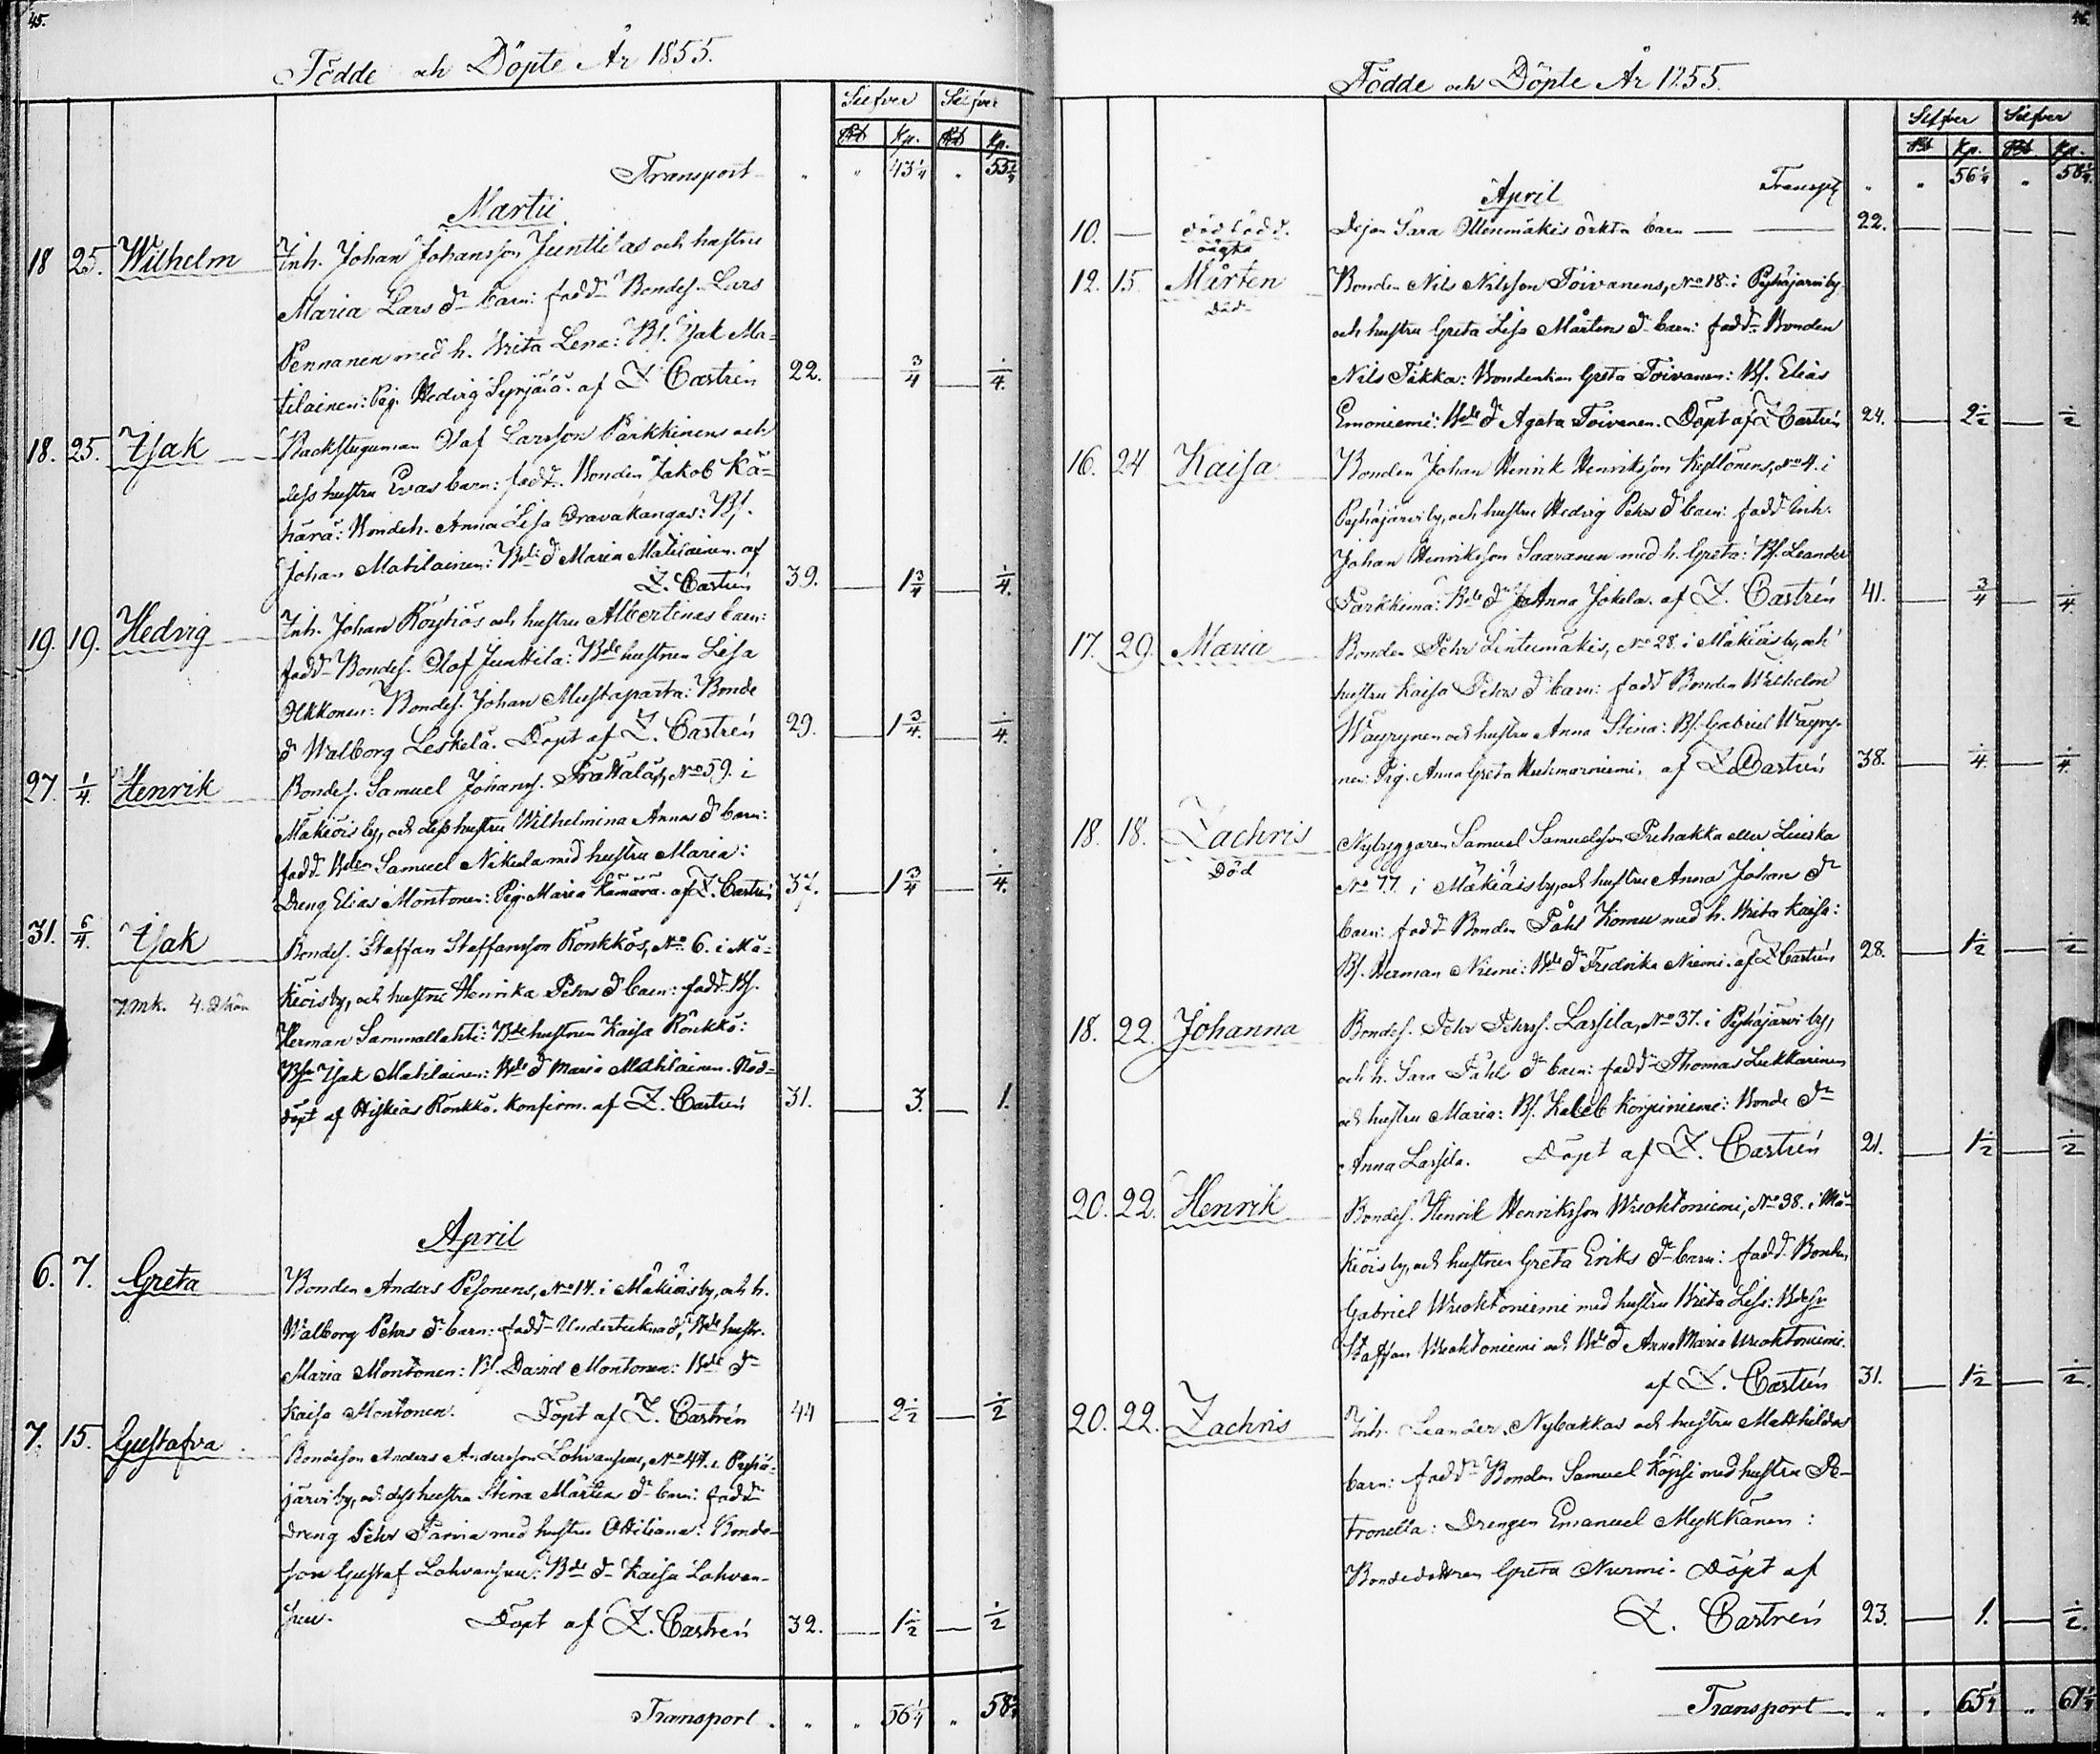 45.
Födde och Döpte År 1855.
Silfver Silfver
Rb Kp. Rb Kp.
Transport " " 43 1/4 " 55 1/4
Martii
18 25. Wilhelm Inh. Johan Johansson Junttilas och hustru
Maria Lars dr barn: fadd. Bondes. Lars
Pennanen med h. Brita Lena: Bs. Isak Ma-
tilainen: Pig. Hedvig Syrjälä. af Z Castrén 22. 3/4 1/4.
18. 25. Isak Backstuguman Olaf Larsson Parkkinens och
dess hustru Evas barn: fadd. Bonden Jakob Kä-
härä: Bondeh. Anna Lisa Oravakangas: Bs.
Johan Matilainen: Bde dr Maria Matilainen. af
Z. Castrén 39. 1 3/4 1/4.
19. 19. Hedvig Inh. Johan Röyhiös och hustru Albertinas barn:
fadd. Bondes. Olaf Junttila: Bde hustrun Lisa
Ukkonen: Bondes. Johan Mustaparta: Bonde
dr Walborg Leskelä. Döpt af Z. Castrén 29. 1 3/4. 1/4.
27. 1/4. Henrik Bondes. Samuel Johans. Prättäläs, No 59. i
Mäkiöis by, och dess hustru Wilhelmina Annas dr barn:
fadd. Bden Samuel Nikula med hustru Maria:
Dreng Elias Montonen: Pig. Maria Kämärä. af Z. Castrén 37. 1 3/4 1/4.
31. 6/4. Isak Bondes. Staffan Staffansson Rönkkös, No 6. i Mä-
kiöis by, och hustru Henrika Pehrs dr barn: fadd. Bs.
7. Mk. 4. Qkön
Herman Sammallahti: Bde hustrun Kaisa Rönkkö:
Bsn Isak Matilainen: Bde dr Maria Matilainen. Nöd-
döpt af Hiskias Rönkkö. Konfirm. af Z. Castrén 31. 3. 1.
April
6. 7. Greta Bonden Anders Pesonens, No 14. i Mäkiöis by, och h.
Walborg Pehrs dr barn: fadd. Undertecknad, Bde hustr.
Maria Montonen: Bs. David Montonen: Bde dr
Kaisa Montonen. Döpt af Z. Castrén 44 2 1/2 1/2
7. 15. Gustafva Bondeson Anders Andersson Lohvansuus, No 44. i Pyhä-
järvi by, och dess hustru Stina Mårten dr barn: fadd.
dreng Pehr Parvia med hustru Ottiliana: Bonde-
son Gustaf Lohvansuu: Bde dr Kaisa Lohvan-
suu. Döpt af Z. Castrén 32. 1 1/2 1/2
Transport. " " 56 1/4 " 58 1/4
46.
Födde och Döpte År 1855.
Silfver Silfver
Rb Kp. Rb Kp.
April Transpt " " 56 1/4 " 58 1/4.
10. — dödfödd. oägta Dejan Sara Ollinmäkis oäkta barn — — 22. — — — —
12. 15. Mårten Bonden Nils Nilsson Toivanens, No 18. i Pyhäjärvi by,
Död
och hustru Greta Lisa Mårtens dr barn: fadd. Bonden
Nils Tikka: Bondenkan Greta Toivanen: Bs. Elias
Emoniemi: Bde dr Agata Toivanen. Döpt af Z Castrén 24. 2 1/2 1/2
16. 24 Kaisa Bonden Johan Henrik Henriksson Kyllönens, No 4. i
Pyhäjärvi by, och hustru Hedvig Pehrs dr barn: fadd. Inh.
Johan Henriksson Saaranen med h. Greta: Bs. Leander
Parkkima: Bde dr Anna Jokela. af Z. Castrén 41. 3/4 1/4.
17. 29. Maria Bonden Pehr Lintumäkis, No 28. i Mäkiöis by, och
hustru Kaisa Pehrs dr barn: fadd Bonden Wilhelm
Wäyrynen och hustru Anna Stina: Bs. Gabriel Wäyry-
nen: Pig. Anna Greta Huhmarniemi. af Z. Castrén 38. 1/4. 1/4.
18. 18. Zachris Nybyggaren Samuel Samuelsson Puhakka eller Luiska
Död
No 77. i Mäkiöis by, och hustru Anna Johan dr
barn: fadd Bonden Påhl Komu med h. Brita Kaisa:
Bs. Herman Niemi: Bde dr Fredrika Niemi. af Z Castrén 28. 1 1/2 1/2
18. 22. Johanna Bondes. Pehr Pehrss. Lassila, No 37. i Pyhäjärvi by,
och h. Sara Påhls dr barn: fadd. Thomas Lukkarinen
och hustru Maria: Bs. Kaleb Korpiniemi: Bonde dr
Anna Lassila. Döpt af Z. Castrén 21. 1 1/2 1/2
20. 22. Henrik Bondes. Henrik Henriksson Wuohtoniemi, No 38. i Mä-
kiöis by, och hustrun Greta Eriks dr barn: fadd. Bonden
Gabriel Wuohtoniemi med hustru Brita Lisa: Bdesn
Staffan Wuohtoniemi och Bde dr Anna Maria Wuohtoniemi.
af Z. Castrén 31. 1 1/2 1/2.
20. 22. Zachris Inh. Leander Nybakkas och hustru Mathildas
barn: fadd. Bonden Samuel Köpsi med hustru Pe-
tronella: Drengen Emanuel Mykkänen:
Bondedottren Greta Nurmi. Döpt af
Z. Castrén 23. 1. 1/2.
Transport " " 65 1/4 " 61 1/4